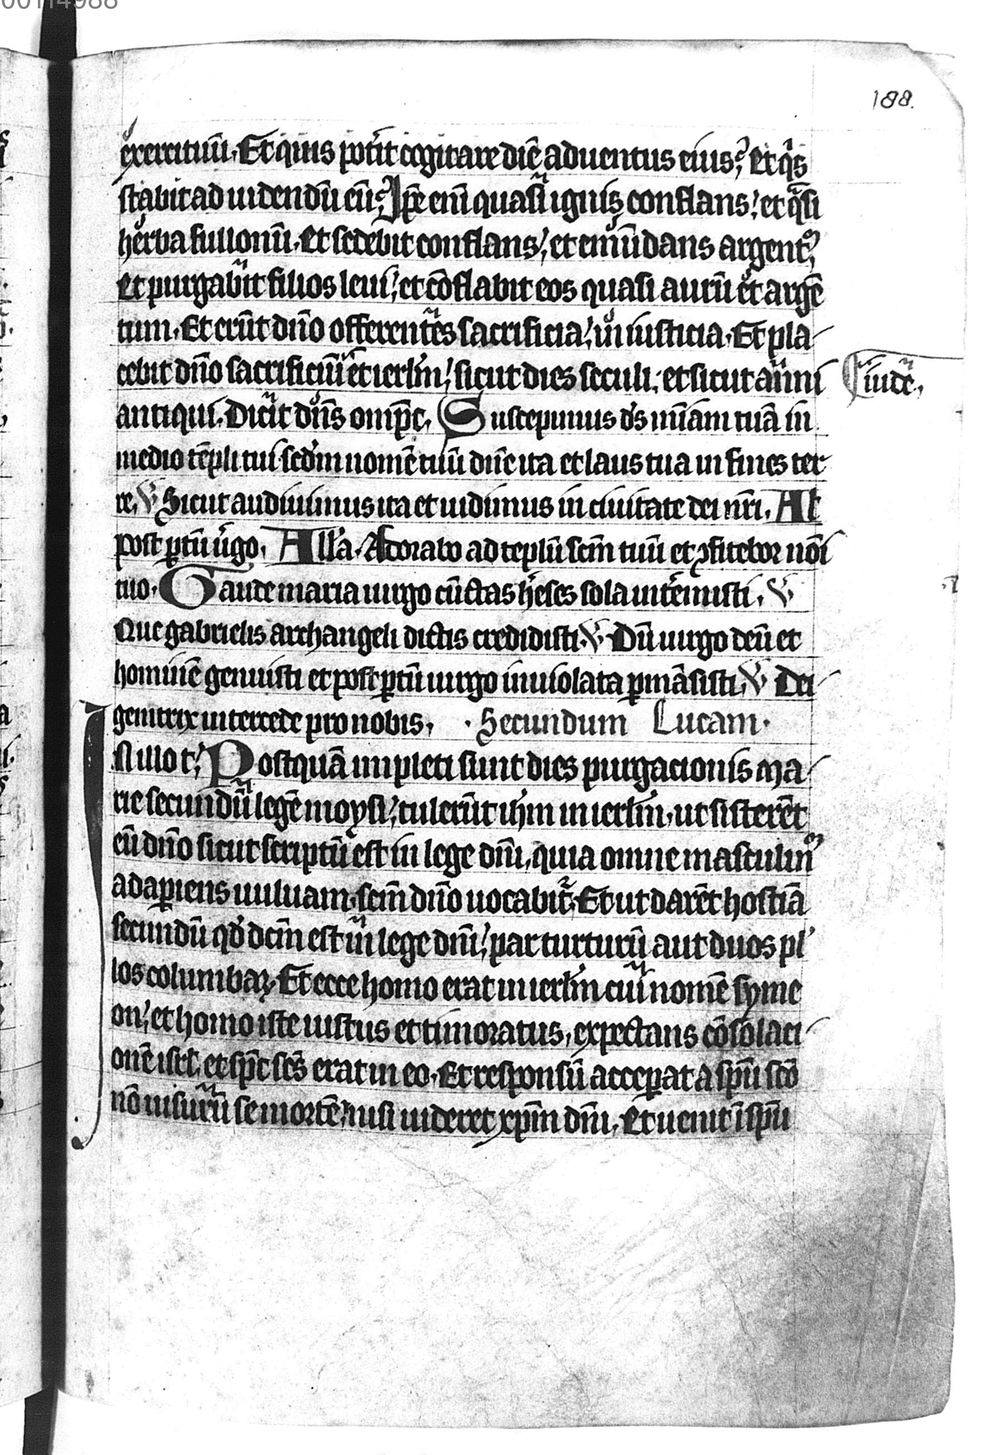 00114988
188.
exercituū. Et quis pot͛it cogitare diē aduentus eius? et qͥs
stabit ad uidendū eū? Ip̄e eni̅ quasi ignis conflans, et qͣsi
herba fullonū. Et sedebit conflans, et emūdans argentū,
et purgabit filios leui, et cōflabit eos quasi aurū et argē
tum. Et erūt dn̄o offerentes sacrificia, in iusticia. Et pla
cebit dn̄o sacrificiū et ierlm̄, sicut dies seculi, et sicut anni
iude,
antiqui. Dicit dn̄s omp̄c, Suscepimus ds̄ mi̅am tuā in
medio tēpli tui sedm̄ nomē tuū dn̄e ita et laus tua in fines ter
re, V Sicut audiuimus ita et uidimus in ciuitate dei nr̄i. Al
post ꝑtū uͥgo. Alla. Adorabo ad teplū scm̄ tuū et ꝯfitebor noi̅
tuo. Gaude maria uirgo cūctas h̓eses sola int͛emisti, V
Que gabrielis archangeli dictis credidisti. V Dū uirgo deū et
hominē genuisti et post ꝑtū uirgo inuiolata ꝑmāsisti, V Dei
genitrix intercede pro nobis, . Secundum Lucam.
In illo t̓, Postquā impleti sunt dies purgacionis ma
rie secundū legē moysi, tulerūt ih̄m in ierlm̄, ut sisterēt
eū dn̄o sicut scriptū est in lege dn̄i, quia omne masculinū
adaꝑiens uuluam, scm̄ dn̄o uocabit͛. Et ut darēt hostiā
secundū qd̄ dcm̄ est in lege dn̄i, par turturū aut duos pl
los columbaꝝ. Et ecce homo erat in ierlm̄ cui nomē syme
on, et homo iste iustus et timoratus, expectans cōsolaci
onē isrl̄, et sp̄c scs̄ erat in eo. Et responsū acceꝑat a sp̄u sc̄o
nō uisurū se mortē, nisi uideret xp̄m dn̄i, Et uenit ī sp̄u